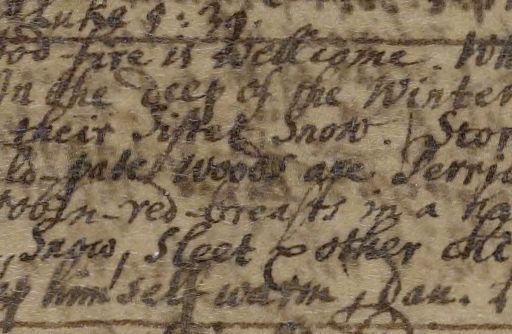 Luke 9: 39.
ood fire is wellcome. Wh
In the deep of the Winter
their Sister Snow. Stor
ld-pate Woods are Perriw
robin-red-breasts in a ha
, Snow, Sleet & other
himself warm, Dan.